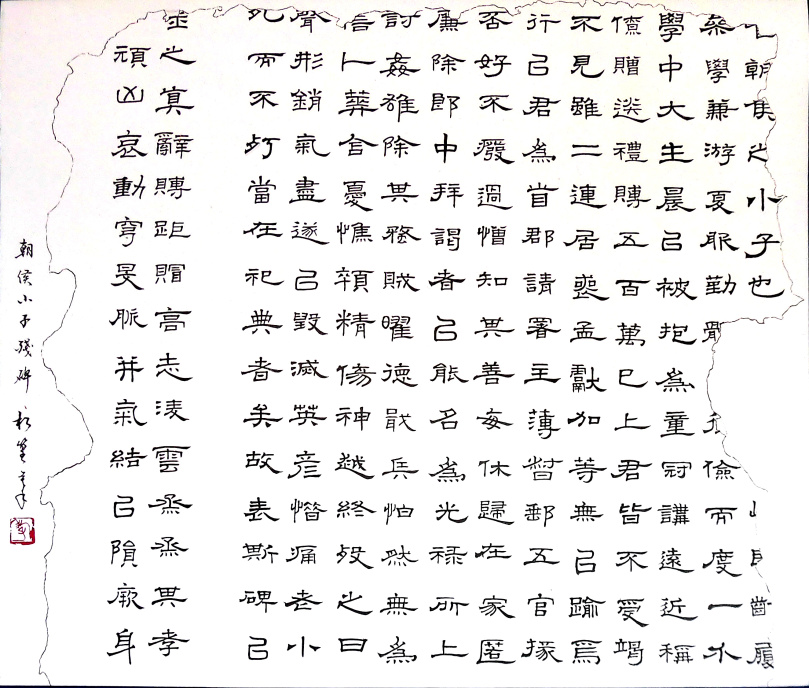 朝侯之小子也 齒履
學兼游夏服勤 儉而度一
學中大主晨以被抱為童冠講遠近稱
僚贈送禮賻五百萬已上君皆不受竭
不見雖二連居喪孟獻加等無以踰焉
行以君為首郡請署主簿督郵五官掾
否好不廢過憎知其善每休歸在家匿
廉除郎中拜謁者以能名為光祿所上
討姦雄除其蝥賊曜德戢兵怕然無為
卜葬含憂憔顇精傷神越終歿之曰
聲形銷氣盡遂以毀滅英彥惜痛老小
死而不朽當在祀典者矣故表斯碑以
之真辭賻距賵高志凌雲烝烝其孝
頑凶哀動穹旻脈并氣結以隕厥身
朝侯小子殘碑